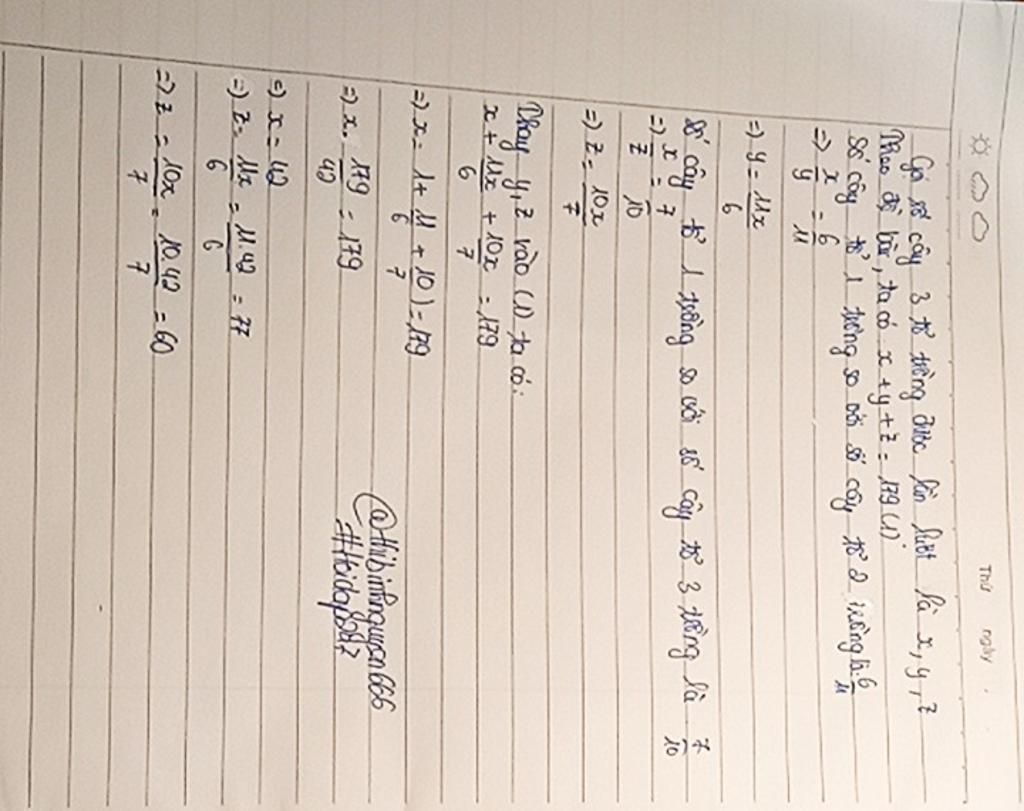 Thứ ngày
Gọi số cây 3 tổ trồng được lần lượt là x, y, z
Theo đề bài, ta có x + y + z = 179 (1)
Số cây tổ 1 trồng so với số cây tổ 2 trồng là: 6/11
=> x/y = 6/11
=> y = 11x/6
Số cây tổ 1 trồng so với số cây tổ 3 trồng là 7/10
=> x/z = 7/10
=> z = 10x/7
Thay y, z vào (1) ta có:
x + 11x/6 + 10x/7 = 179
=> x = 1 + 11/6 + 10/7) = 179
=> x . 179/42 = 179
=> x = 42
=> z = 11x/6 = 11.42/6 = 77
=> z = 10x/7 = 10.42/7 = 60
@thibinhnguyen666
#Hoidap247